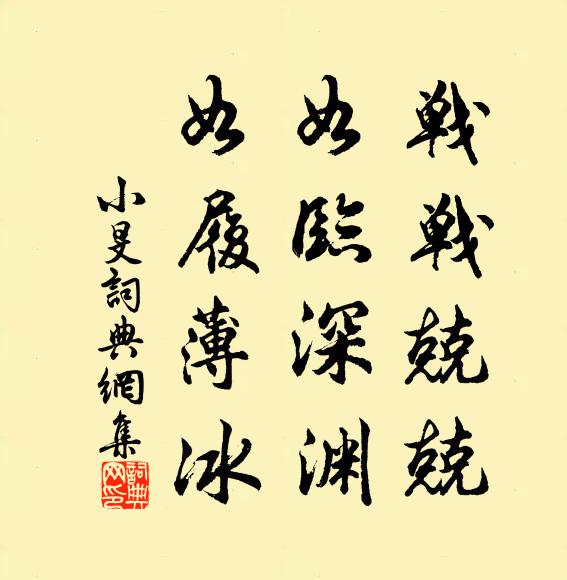 戰戰兢兢
如臨深淵
如履薄冰
小旻詞典網集
詞典
网印